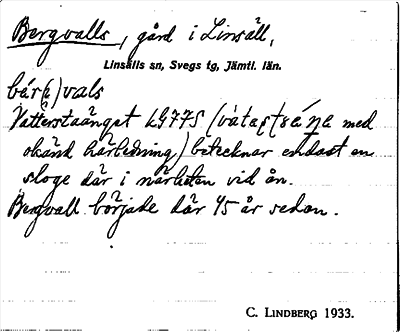 Bergvalls, gård i Linsäll,
Linsälls sn, Svegs tg, Jämtl. län.
bár(g)vals
Vätterstaänget LG775 (våtaʃtsɛ́ŋe med
okänd härledning) betecknar endast en
sloge där i närheten vid ån.
Bergvall började där 45 år sedan.
C. LINDBERG 1933.